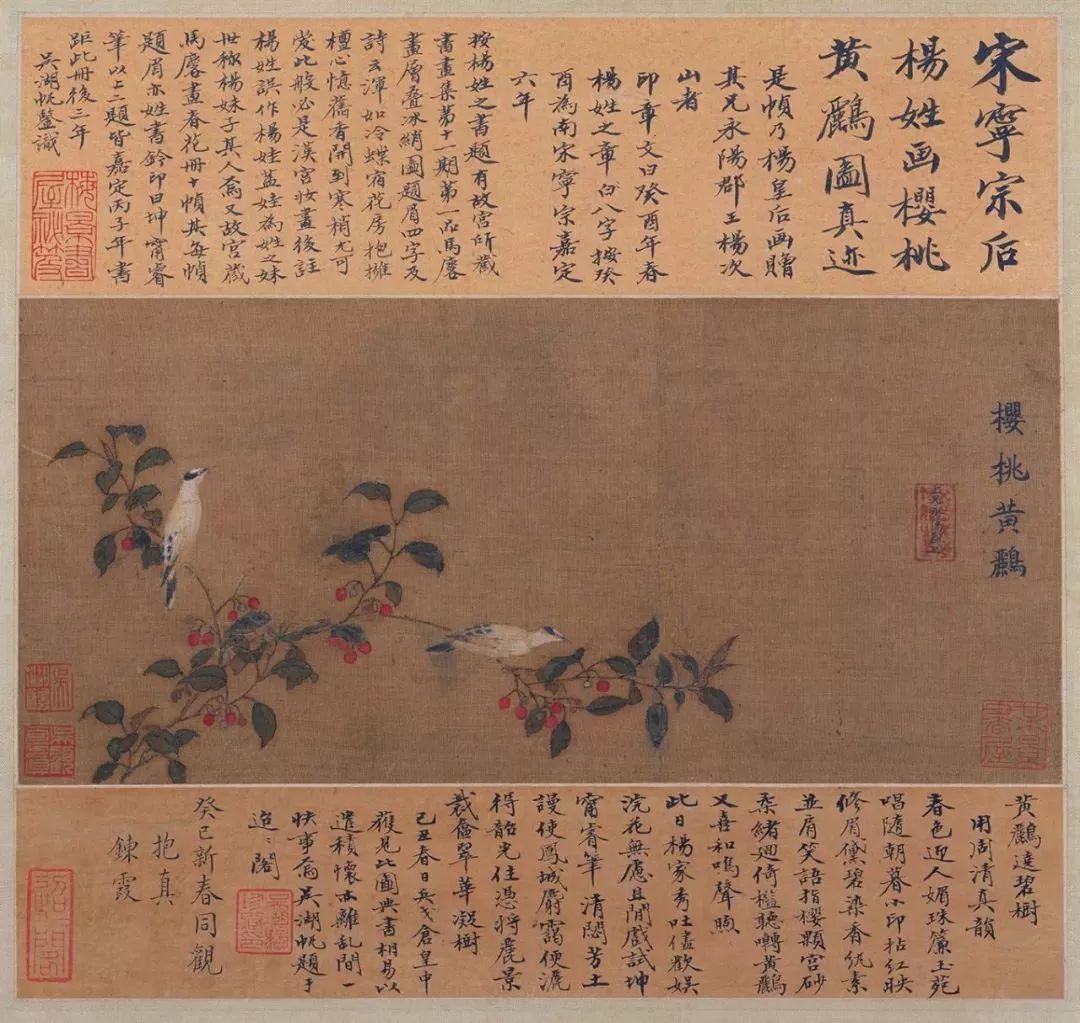 宋寧宗后
楊姓画櫻桃
黄鸝圖真迹
是幀乃楊皇后画贈
其兄永陽郡王楊次
山者
印章文曰癸酉年春
楊姓之章白八字按癸
酉為南宋寧宗嘉定
六年
按楊姓之書題有故宮所藏
書畫集第十一期第一品馬麐
畫層叠冰綃圖題眉四字及
詩云渾如冷蝶宿花房抱擁
檀心憶舊香開到寒梢尤可
愛此般必是漢宮妝畫後註
楊姓誤作楊娃蓋娃為姓之妹
世稱楊妹子其人矞又故宮藏
馬麐畫春花冊十幀其每幀
題眉亦姓書鈐印曰坤甯睿
筆以上二題皆嘉定丙子年書
距此冊後三年
吳湖帆鑒識
櫻桃黄鸝
黄鸝遶碧樹
用周清真韻
春色迎人媚珠簾玉苑
唱隨朝暮小印拈紅映
修眉黛碧染香紈素
並肩笑語指櫻顆宮砂
柔緒廻倚檻聽囀黄鸝
又喜和鳴聲煦
此日楊家秀吐儘歡娱
浣花無慮且閒戲試坤
甯睿筆清閟芳土
謾使鳳城麝靄便灑
得韶光住憑將麗景
裁奩翠華凝樹
己丑春日兵戈倉皇中
獲見此圖典書相易以
遣積懷亦離亂間一
快事矞吳湖帆題于
迢迢閣
癸巳新春同觀
抱真
鍊霞